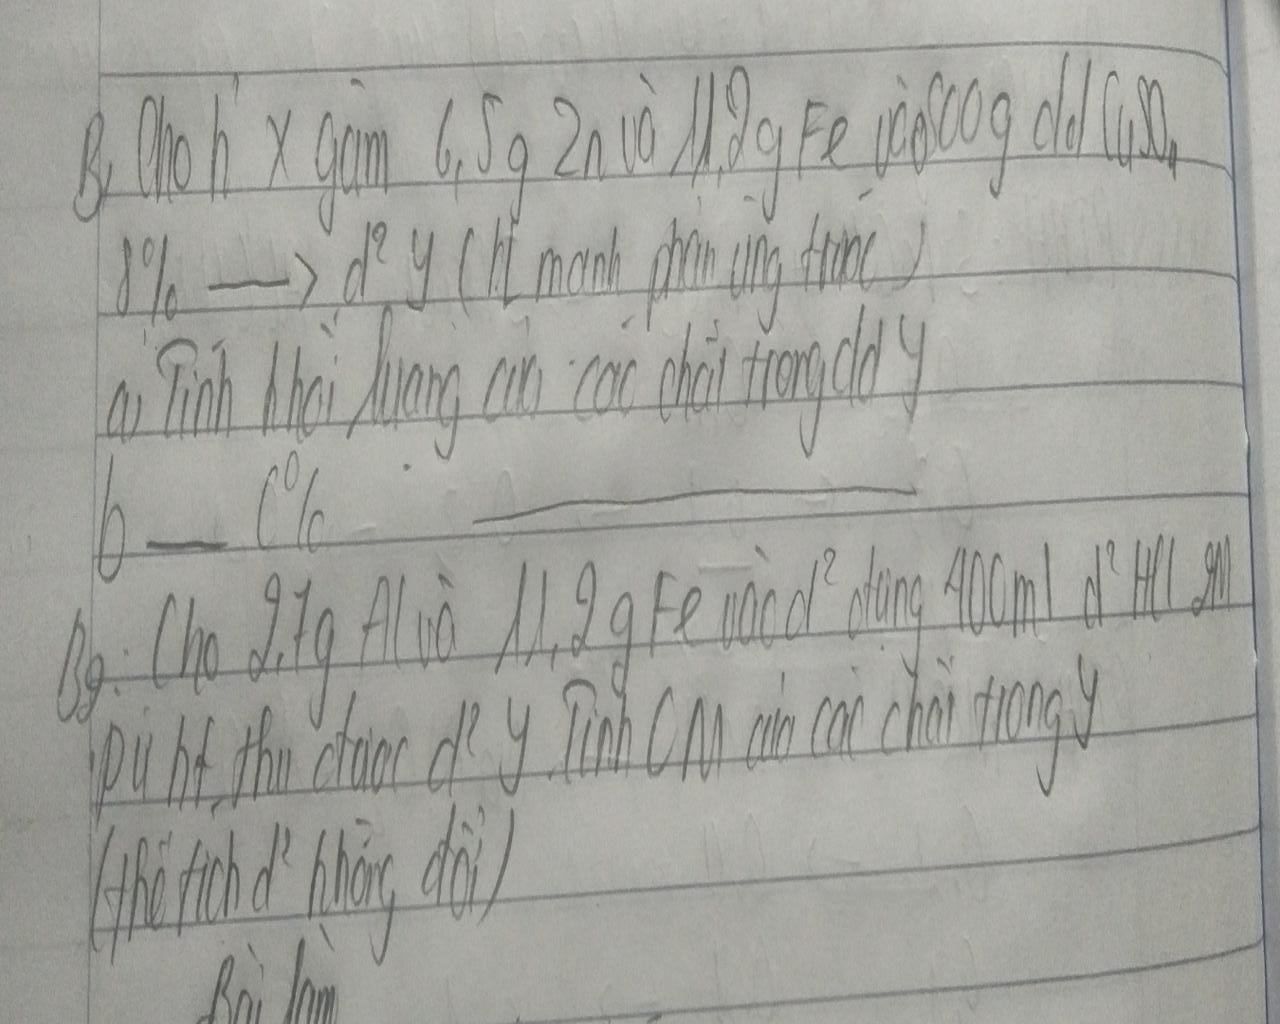 B, Cho h² X gồm 6,5g Zn và 11,2g Fe vào 500g dd CuSO4
8% → d² Y ( mạnh phản ứng trước )
a, Tính khối lượng của các chất trong dd Y
b — C% —
B9: Cho 2,7g Al và 11,2g Fe vào d² đựng 400ml d² HCl 2M
pứ ht, thu được d² Y. Tính CM của các chất trong Y
(thể tích d² không đổi)
Bài làm